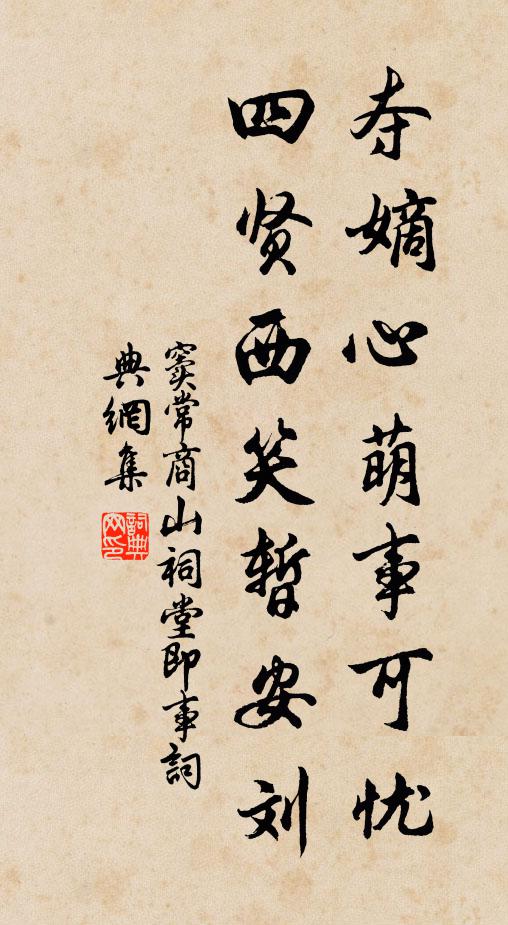 夺嫡心萌事可忧
四贤西笑暂安刘
窦常商山祠堂即事詞
典網集
詞典
网印